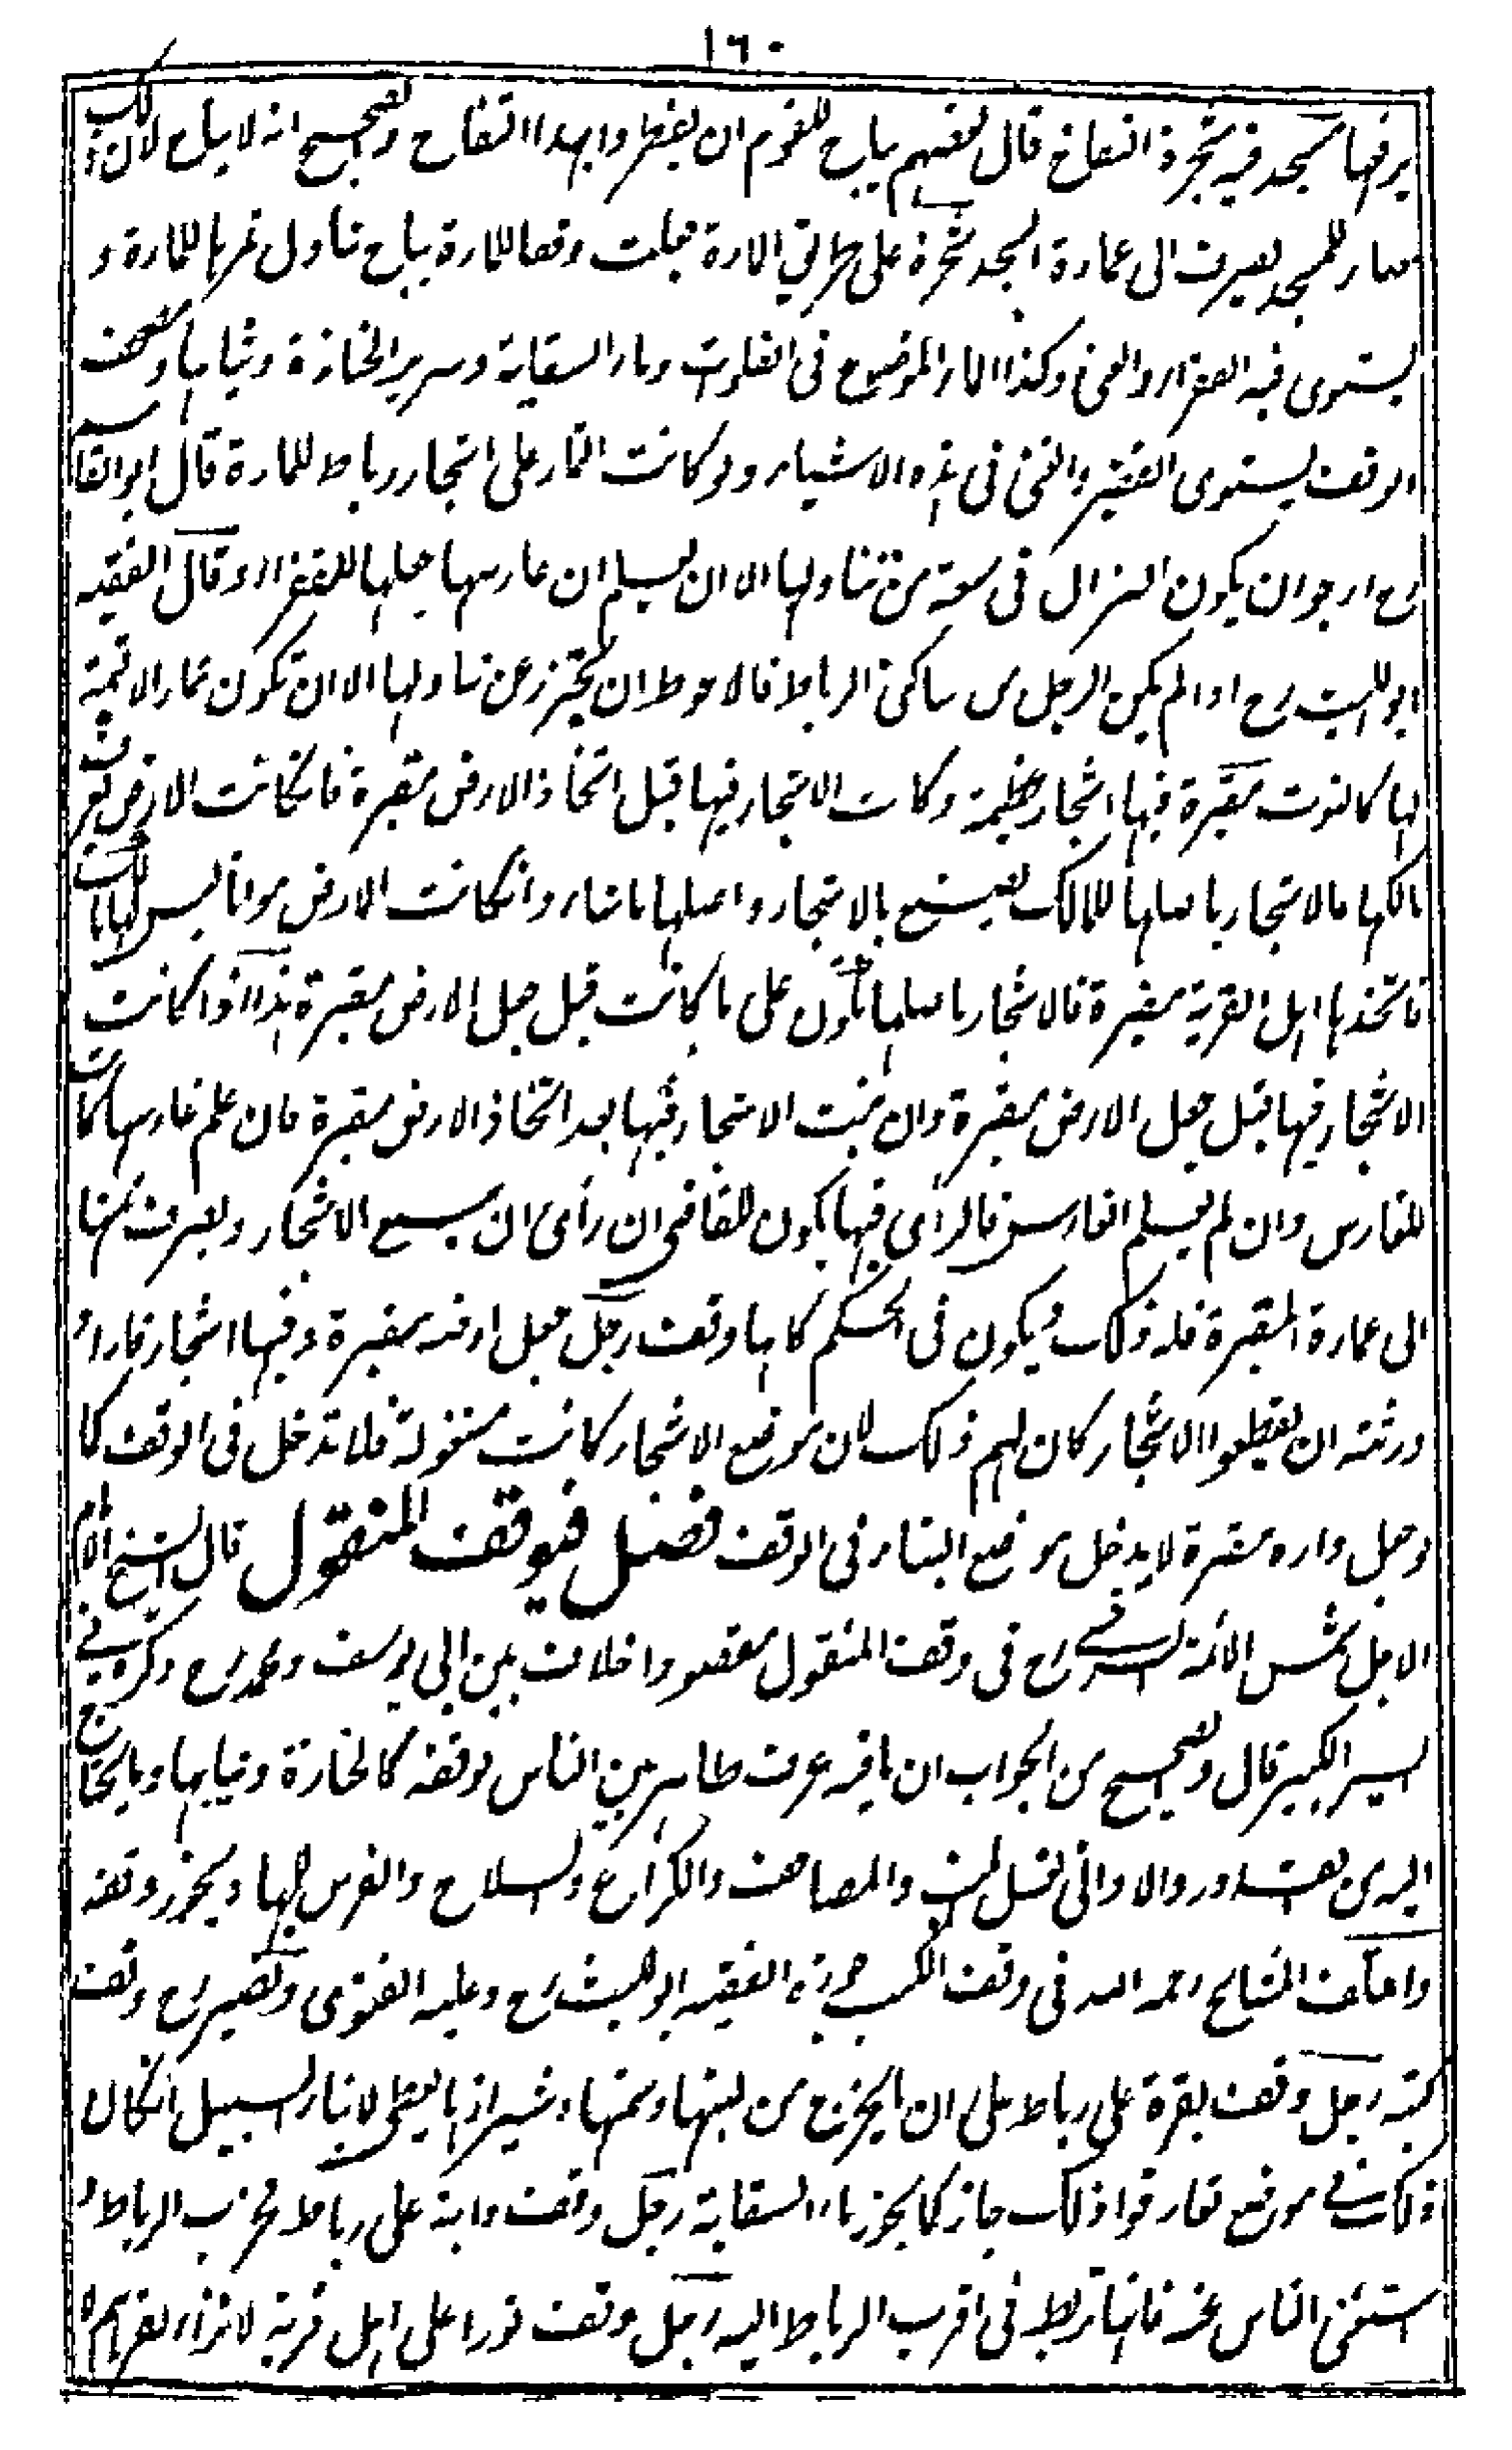 ١٦٠
يرفها مسجد فيه شجرة التفاح قال بعضهم يباح للقوم ان يفطروا بهذا التفاح والصحيح انه لا يباح لان ذلك
صار للمسجد يصرف الى عمارة المسجد شجرة على طريق المارة جعلت وقفا للمارة يباح تناول ثمرها للمارة و
يستوى فيه الفقراء والغنى وكذا الماء الموضوع فى الفلوات وماء السقاية وسرير الجنازة وثيابها ومصحف
الوقف يستوى الفقير والغنى فى هذه الاشياء ولو كانت الثمار على اشجار رباط للمارة قال ابو القاسم
رح ارجو ان يكون النزال فى سعة من تناولها الا ان يعلم ان غارسها جعلها للفقراء وقال الفقيه
ابو الليث رح اذا لم يكن الرجل من ساكنى الرباط فالاحوط ان يحترز عن تناولها الا ان تكون ثمارا لا قيمة
لها كالتوت مقبرة فيها اشجار عظيمة وكانت الاشجار فيها قبل اتخاذ الارض مقبرة فانكانت الارض يعرف
مالكها فالاشجار باصلها للمالك يصنع بالاشجار واصلها ما شاء وانكانت الارض مواتا ليس لها مالك
فاتخذها اهل القرية مقبرة فالاشجار باصلها تكون على ما كانت قبل جعل الارض مقبرة هذا اذا كانت
الاشجار فيها قبل جعل الارض مقبرة وان نبتت الاشجار فيها بعد اتخاذ الارض مقبرة فان علم غارسها كانت
للغارس وان لم يعلم الغارس فالرأى فيها يكون للقاضى ان رأى ان يبيع الاشجار ويصرف ثمنها
الى عمارة المقبرة فله ذلك ويكون فى الحكم كانها وقف رجل جعل ارضه مقبرة وفيها اشجار فاراد
ورثته ان يقطعوا الاشجار كان لهم ذلك لان موضع الاشجار كانت مشغولة فلا تدخل فى الوقف كما
لو جعل داره مقبرة لا يدخل موضع البناء فى الوقف فصل فى وقف المنقول قال الشيخ الامام
الاجل شمس الائمة السرخسى رح فى وقف المنقول مقصودا خلاف بين ابى يوسف ومحمد رح ذكره فى
السير الكبير قال والصحيح من الجواب ان ما فيه عرف ظاهر بين الناس بوقفه كالجنازة وثيابها وما يحتاج
اليه من القدور والاوانى لغسل الميت والمصاحف والكراع والسلاح والفرس للجهاد يجوز وقفه
واختلف المشايخ رحمهم الله فى وقف الكتب جوزه الفقيه ابو الليث رح وعليه الفتوى ونصير رح وقف
كتبه رجل وقف بقرة على رباط على ان ما يخرج من لبنها وسمنها وشيرازها يعطى لابناء السبيل انكان
ذلك فى موضع تعارفوا ذلك جاز كما يجوز ماء السقاية رجل وقف دابة على رباط فخرب الرباط و
استغنى الناس عنه فانها تربط فى اقرب الرباط اليه رجل وقف ثورا على اهل قرية لانزاء بقرهم